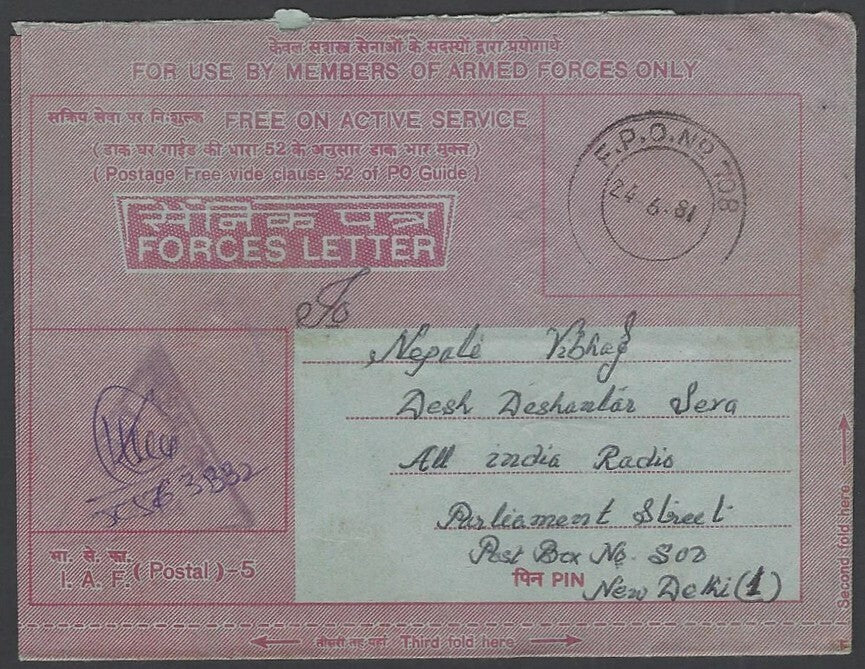 केवल सशस्त्र सेनाओं के सदस्यों द्वारा प्रयोगार्थ
FOR USE BY MEMBERS OF ARMED FORCES ONLY
सक्रिय सेवा पर निःशुल्क FREE ON ACTIVE SERVICE
(डाक घर गाईड की धारा 52 के अनुसार डाक भार मुक्त)
(Postage Free vide clause 52 of PO Guide)
सैनिक पत्र
FORCES LETTER
F.P.O. No 708
24.6.81
To
Nepali Vibhag
Desh Deshantar Seva
All india Radio
Parliament Street
Post Box No.
पिन PIN New Delhi (1)
भा. से. फा.
I. A. F. (Postal)-5
Second fold here
तीसरी तह यहां Third fold here